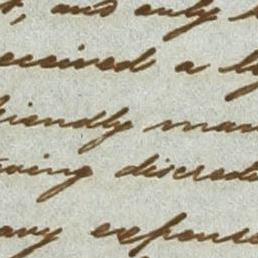 , and only
eceived a
iendly man
ving discred
avy expense